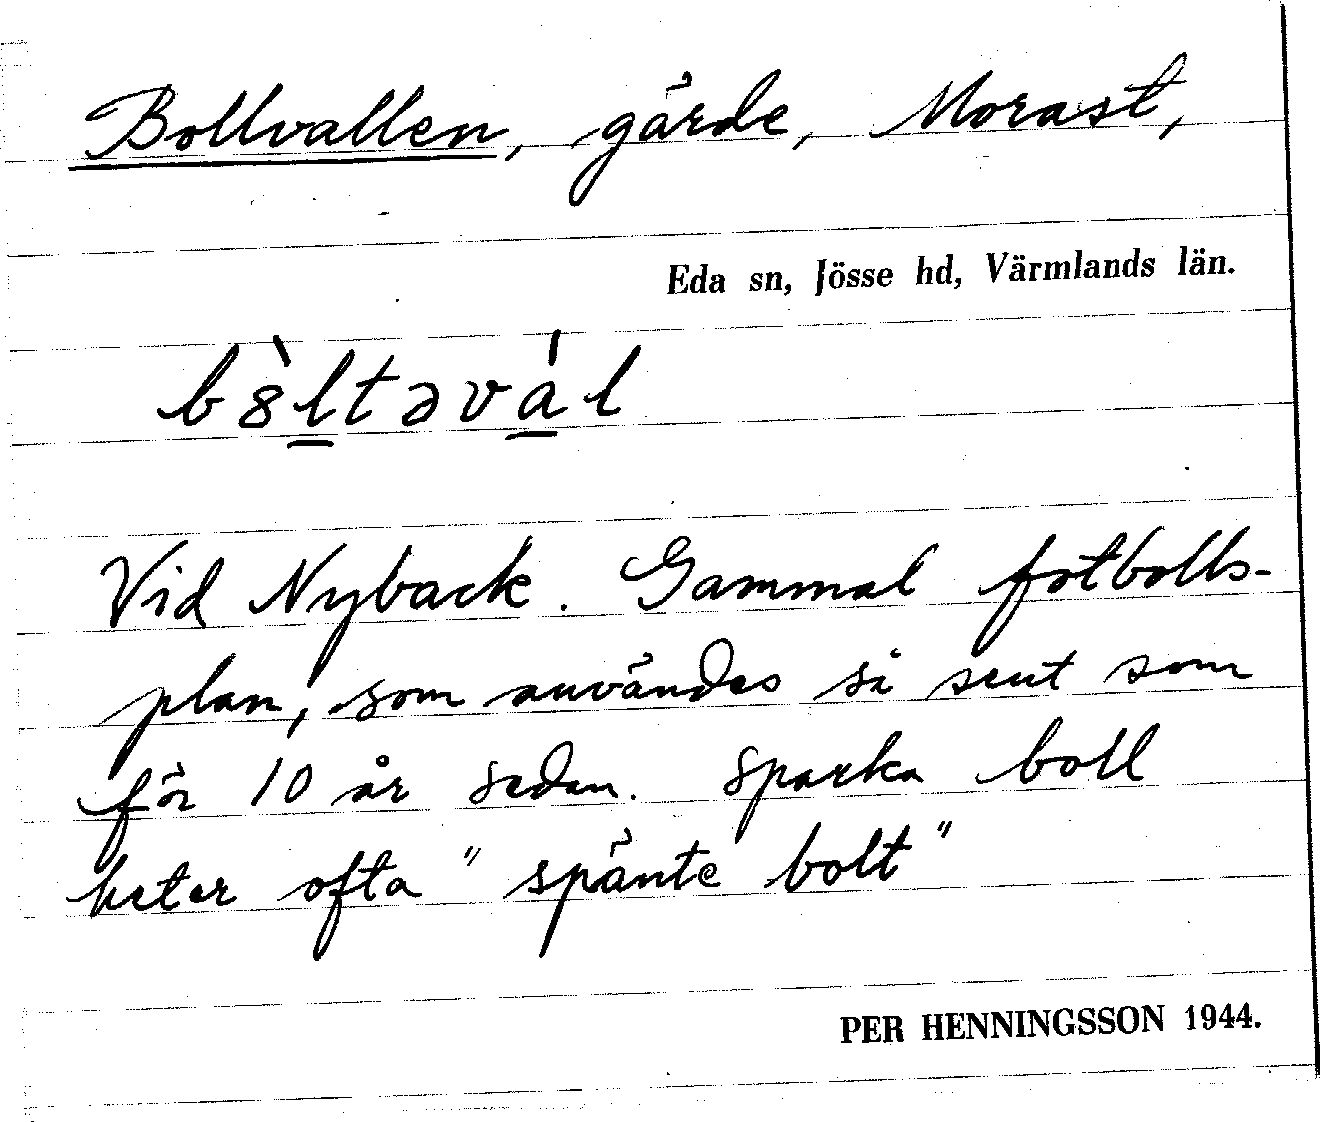 Bollvallen, gärde, Morast,
Eda sn, Jösse hd, Värmlands län.
b8̀l̲təvá̲l
Vid Nyback. Gammal fotbolls-
plan, som användes så sent som
för 10 år sedan. Sparka boll
heter ofta "spänte bolt"
PER HENNINGSSON 1944.